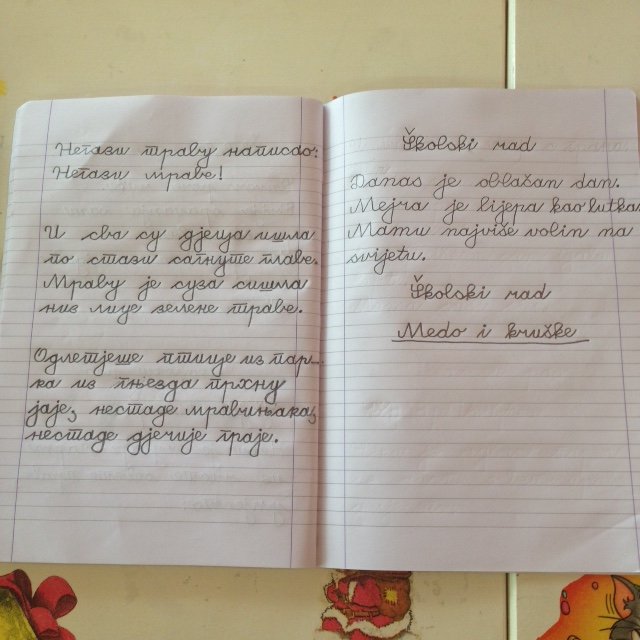 Негази траву написао:
Негази мраве!
И сва су дјеца ишла
по стази сагнуте главе.
Мраву је суза сишла
низ лице зелене траве.
Одлетјеше птице из пар-
ка из гњезда прхну
јаје, нестаде мравињака,
нестаде дјечије граје.
Školski rad
Danas je oblačan dan.
Mejra je lijepa kao lutka.
Mamu najviše volin na
svijetu.
Školski rad
Medo i kruške